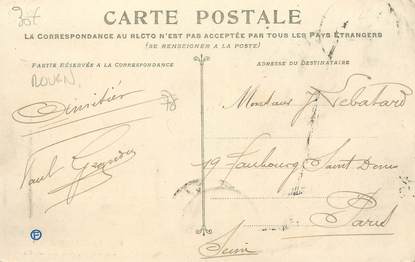 CARTE POSTALE
LA CORRESPONDANCE AU RECTO N'EST PAS ACCEPTÉE PAR TOUS LES PAYS ÉTRANGERS
(SE RENSEIGNER A LA POSTE)
PARTIE RÉSERVÉE A LA CORRESPONDANCE
ADRESSE DU DESTINATAIRE
ROUEN
78
Amitiés
Paul
Monsieur J Lebatard
19 Faubourg Saint Denis
Paris
Seine